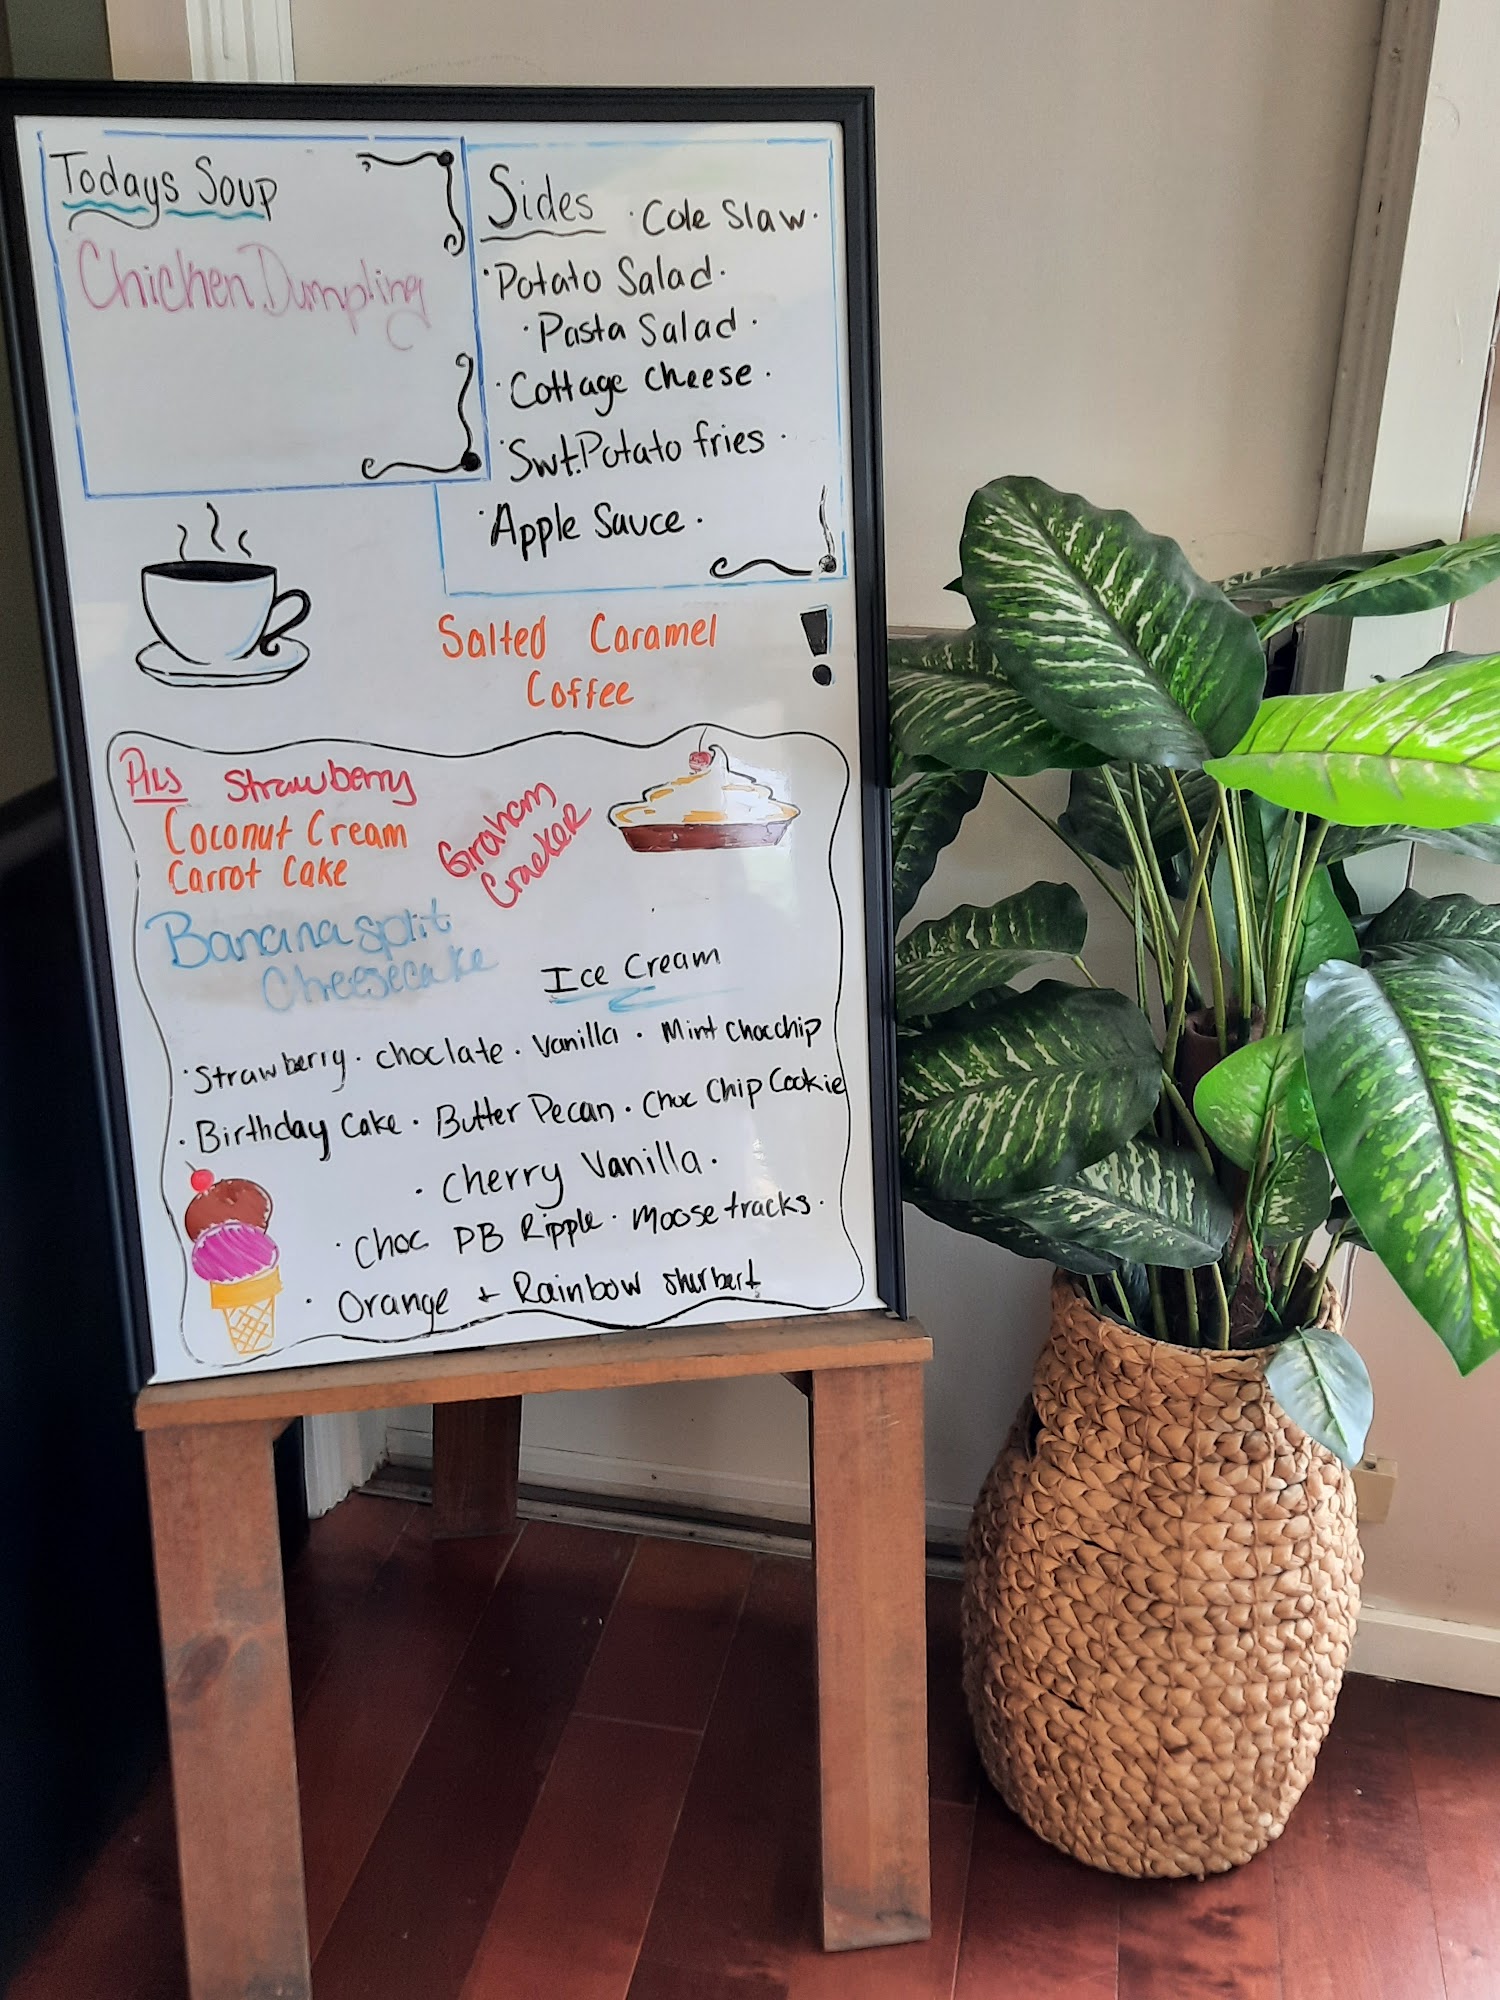 Todays Soup
Chicken Dumpling
Sides · Cole Slaw ·
· Potato Salad ·
· Pasta Salad ·
· Cottage Cheese ·
· Swt. Potato fries ·
· Apple Sauce ·
Salted Caramel !
Coffee
Pies Strawberry
Coconut Cream
Carrot Cake
Graham
Cracker
Banana split
Cheesecake
Ice Cream
· Strawberry · choclate · Vanilla · Mint Chocchip
· Birthday Cake · Butter Pecan · Choc Chip Cookie
· Cherry Vanilla ·
· Choc PB Ripple · Moose tracks ·
· Orange + Rainbow Shurbert